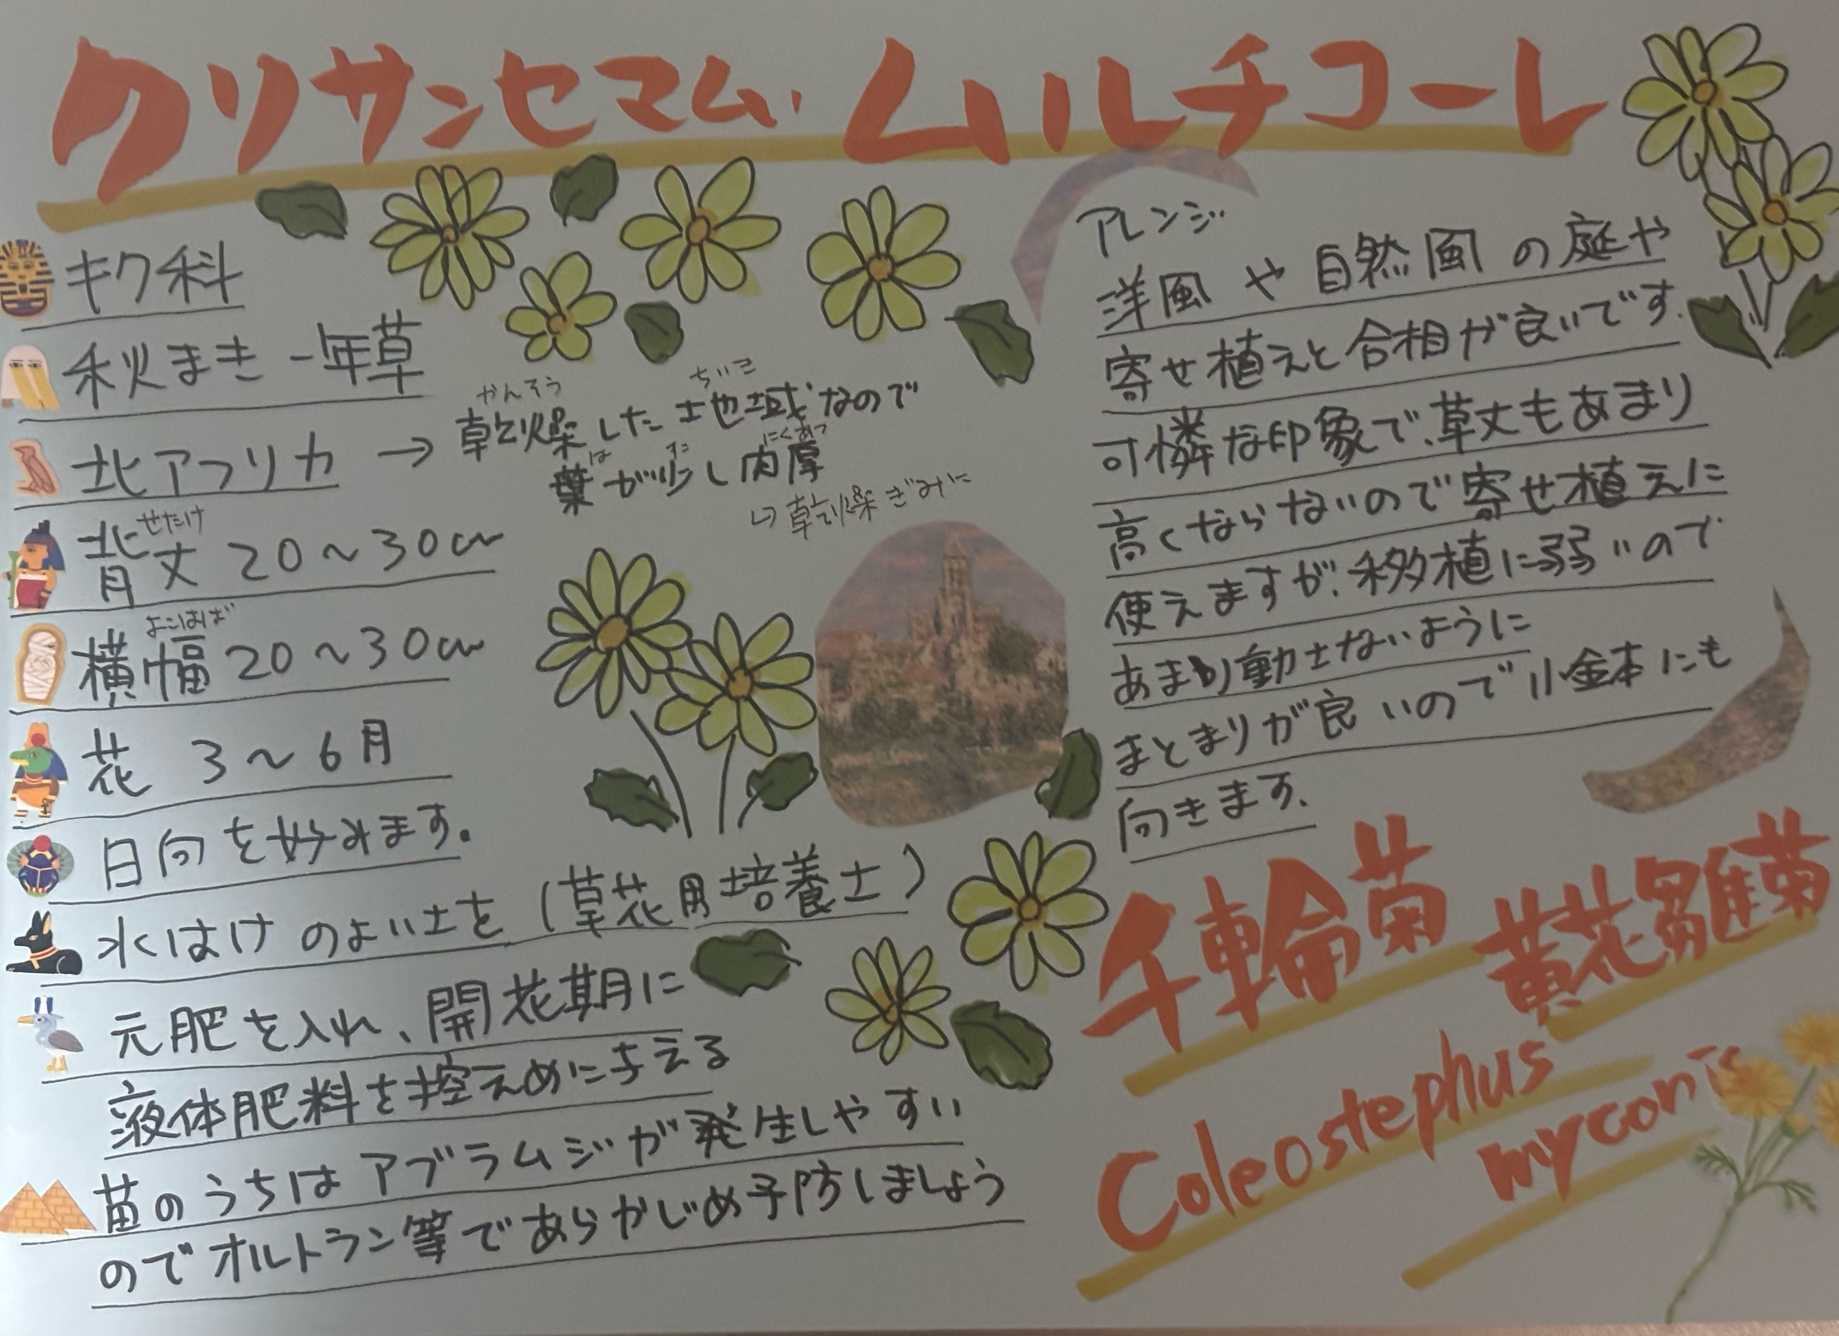 クリサンセマム・ムルチコーレ
キク科
秋まき一年草
北アフリカ → 乾燥した地域なので
かんそう ちいき
葉が少し肉厚
は すこ にくあつ
↳ 乾燥ぎみに
背丈 20〜30cm
せたけ
横幅 20〜30cm
よこはば
花 3〜6月
日向を好みます。
水はけのよい土を(草花用培養土)
元肥を入れ、開花期に
液体肥料を控えめに与える
苗のうちはアブラムジが発生しやすい
のでオルトラン等であらかじめ予防しましょう
アレンジ
洋風や自然風の庭や
寄せ植えと合相が良いです。
可憐な印象で、草丈もあまり
高くならないので寄せ植えに
使えますが、移植に弱いので
あまり動さないように
まとまりが良いので小金本にも
向きます。
千輪菊
黄花雛菊
Coleostephus
myconis